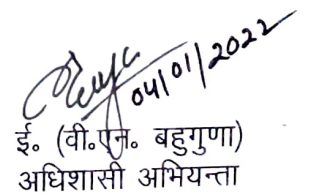 04/01/2022
ई० (वी०एन० बहुगुणा)
अधिशासी अभियन्ता